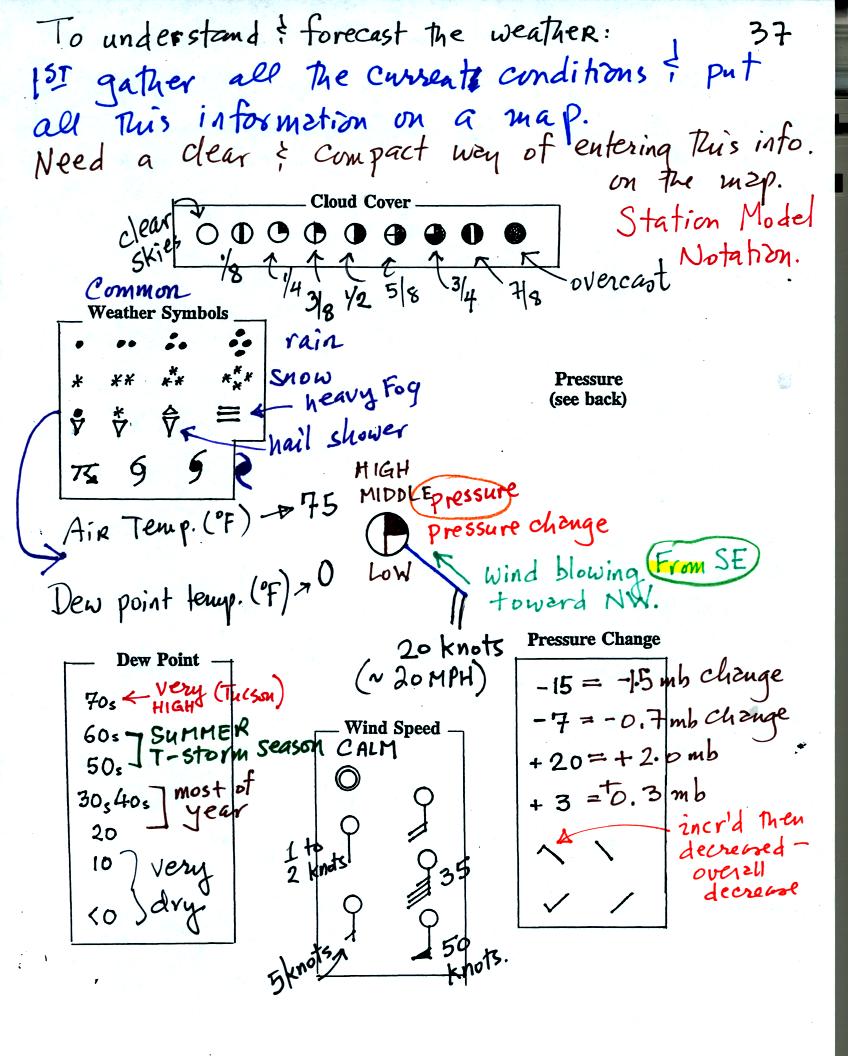 To understand & forecast the weather: 37
1ST gather all the current conditions & put
all this information on a map.
Need a clear & compact way of entering this info.
on the map.
Station Model
Notation.
Cloud Cover
clear
skies
1/8 1/4 3/8 1/2 5/8 3/4 7/8 overcast
Common
Weather Symbols
rain
snow
heavy Fog
hail shower
Pressure
(see back)
HIGH
MIDDLE pressure
pressure change
LOW
Air Temp. (°F) → 75
Dew point temp. (°F) → 0
wind blowing From SE
toward NW.
20 knots
(~ 20 MPH)
Dew Point
70s ← very (Tucson)
HIGH
60s SUMMER
50s T-storm season
30s, 40s most of
year
20
10 very
<0 dry
Wind Speed
CALM
1 to
2 knots
35
5 knots
50
knots.
Pressure Change
-15 = -1.5 mb change
-7 = -0.7 mb change
+20 = +2.0 mb
+3 = +0.3 mb
incr'd then
decreased -
overall
decrease